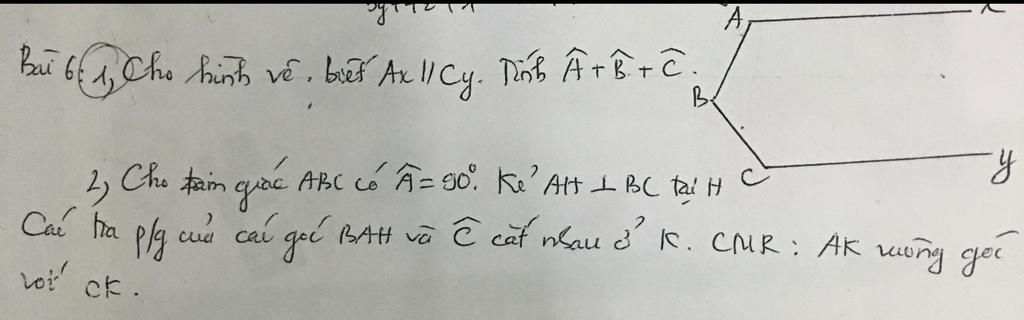 Bài 6: 1, Cho hình vẽ. biết Ax // Cy. Tính Â + B̂ + Ĉ.
A
x
B
C
y
2, Cho tam giác ABC có Â = 90°. Kẻ AH ⊥ BC tại H
Các tia p/g của các góc BAH và Ĉ cắt nhau ở K. CMR: AK vuông góc
với CK.